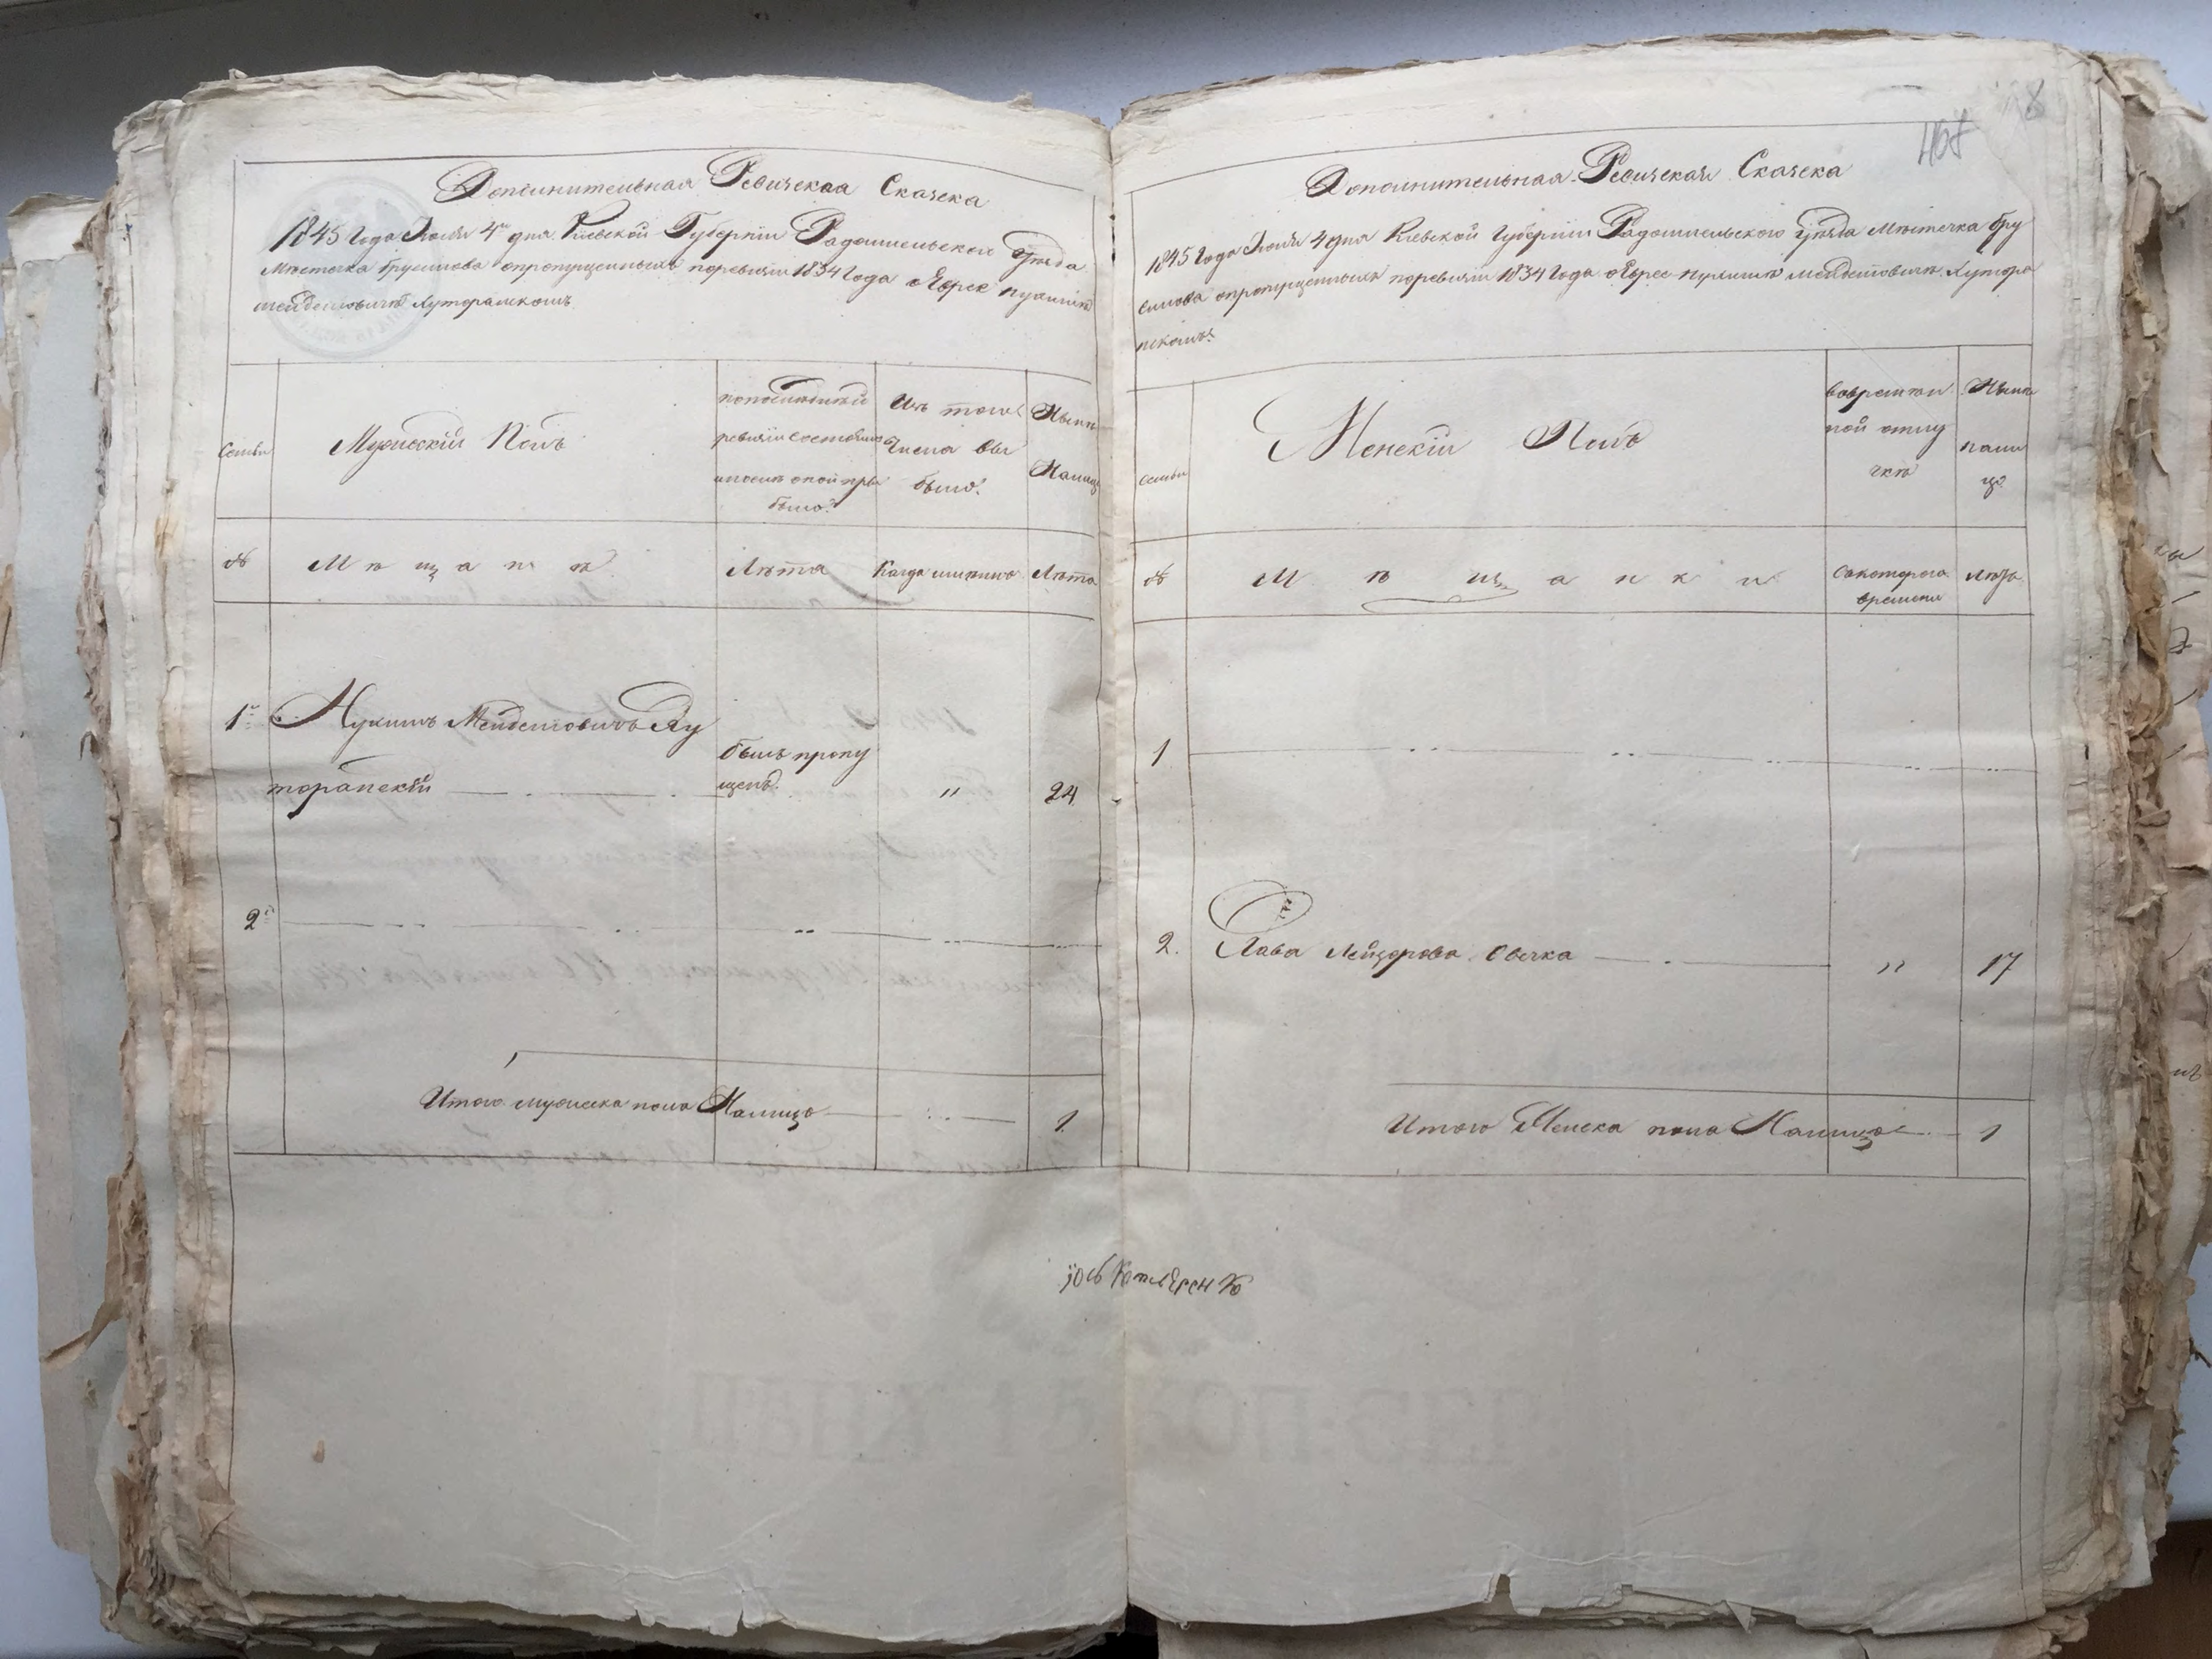 Дополнительная Ревижская Сказска
1845 Года Июля 4го дня Киевской Губернiи Радомысльского Уѣзда
Мѣстечка Брусилова опропущенныхъ поревизiи 1834 Года оЕврее
Мендетовичѣ Хуторанскомъ
Семьи
Мужескiй Полъ
попослѣдней
ревизiи состояло
ипослѣ оной при
было
Изъ того
Числа вы
было
Нынѣ
Налицо
№
Мѣщанѣ
Лѣта
Когда имянно
Лѣта
1й
Мендетовичъ Ху
торанскiй
былъ пропу
щенъ
"
24
2й
Итого мужеска пола Налицо
1
468
8
Дополнительная Ревижская Сказска
1845 Года Июля 4 дня Кiевской Губернiи Радомысльского Уѣзда Мѣстечка Бру
силова опропущенныхъ поревизiи 1834 Года оЕврее Мендетовичѣ Хуторан
скомъ
Семьи
Женскiй Полъ
Вовремян
ной отлу
чкѣ
Нынѣ
нали
цо
№
Мѣщанки
Скоторого
времени
Лѣта
1
2.
Хава Лейзорова Овечка
"
17
Итого Женска пола Налицо
1